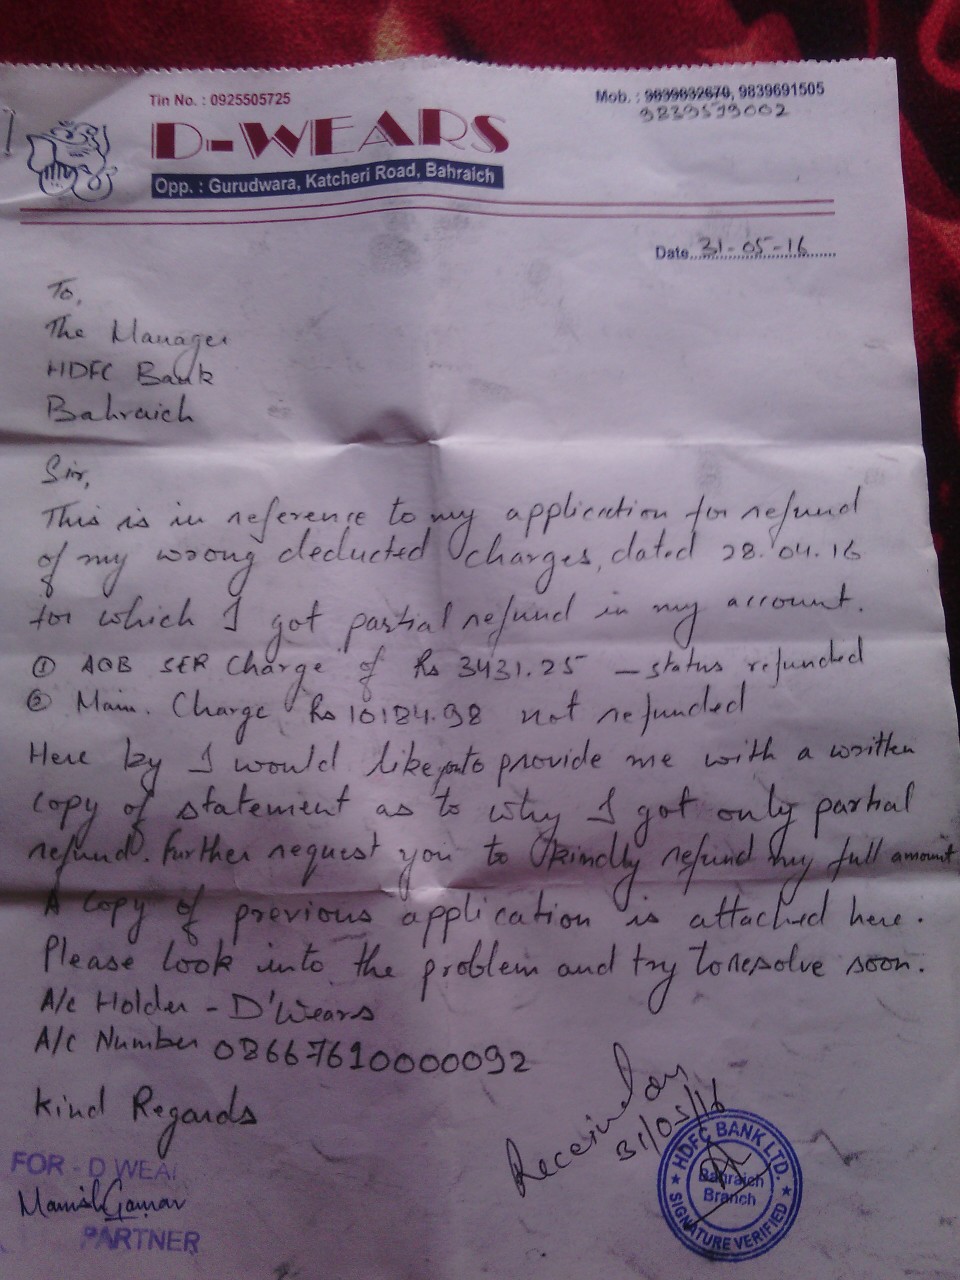 Tin No. : 0925505725
Mob. : 9839032670, 9839691505
9839579002
D-WEARS
Opp. : Gurudwara, Katcheri Road, Bahraich
Date 31-05-16
To,
The Manager
HDFC Bank
Bahraich
Sir,
This is in reference to my application for refund
of my wrong deducted charges, dated 28.04.16
for which I got partial refund in my account.
① AQB SER Charge of Rs 3431.25 – status refunded
② Main. Charge Rs 10184.98 not refunded
Here by I would like you to provide me with a written
copy of statement as to why I got only partial
refund. Further request you to kindly refund my full amount
A copy of previous application is attached here.
Please look into the problem and try to resolve soon.
A/c Holder - D'Wears
A/c Number 08667610000092
Kind Regards
Received on
31/05/16
FOR - D WEA
Manish
PARTNER
HDFC BANK LTD.
Bahraich
Branch
SIGNATURE VERIFIED